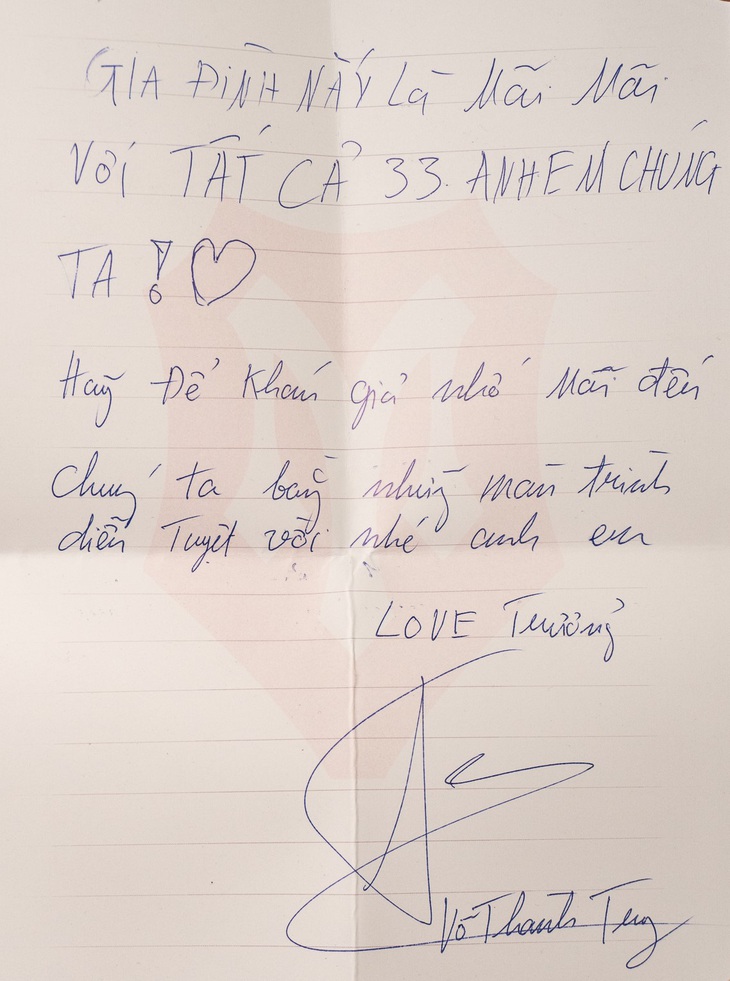 GIA ĐÌNH NÀY Là Mãi Mãi
Với TẤT CẢ 33 ANH EM CHÚNG
TA ! ♡
Hãy Để Khán giả nhớ Mãi đến
chúng ta bằng những màn trình
diễn Tuyệt vời nhé anh em
LOVE Trưởng
Võ Thành Tung